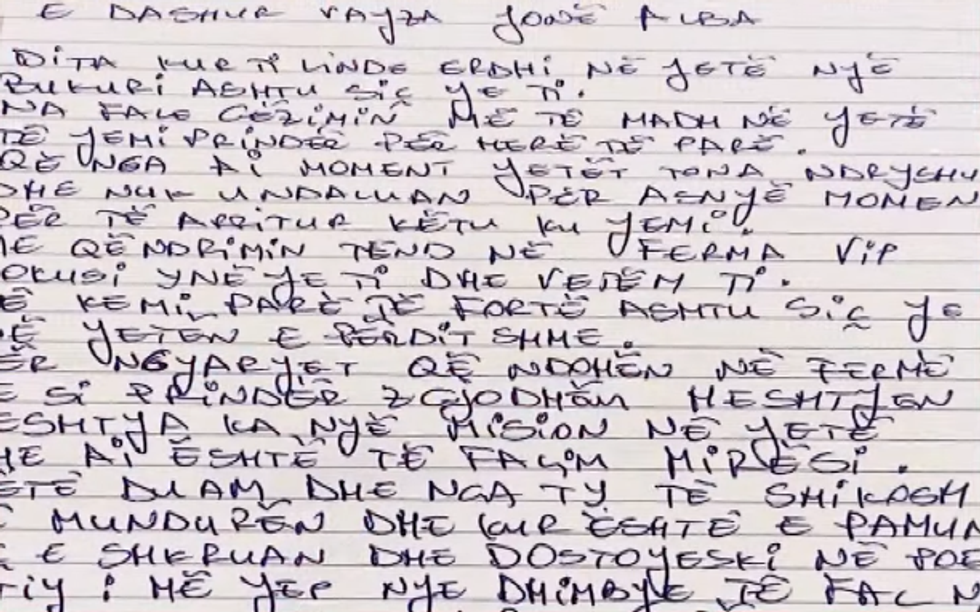 E DASHUR VAYZA YONË ALBA
DITA KUR TI LINDE ERDHI NË YETË NYË
BUKURI ASHTU SIÇ YE TI.
NA FALE GËZIMIN MË TË MADH NË YETË
TË YEMI PRINDËR PËR HERË TË PARË.
QË NGA AI MOMENT YETËT TONA NDRYSHU
DHE NUK U NDALUAN PËR ASNYË MOMEN
PËR TË ARRITUR KËTU KU YEMI.
ME QËNDRIMIN TEND NË FERMA VIP
OKUSI YNË YE TI DHE VETËM TI.
Ë KEMI PARË TË FORTË ASHTU SIÇ YE
Ë YETEN E PËRDITSHME.
ËR NGYARYET QË NDOHËN NË FERMË
E SI PRINDËR ZGJODHËM HESHTJEN
ESHTYA KA NYË MISION NË YETË
HE AI ËSHTË TË FAÇIM MIRËSI.
ETË DUAM DHE NGA TY TË SHIKOSH
Ë MUNDURËN DHE KUR ËSHTË E PAMUN
E E SHKRUAN DHE DOSTOYESKI NË POE
TIY I MË YEP NYE DHIMBYE TË FAL N